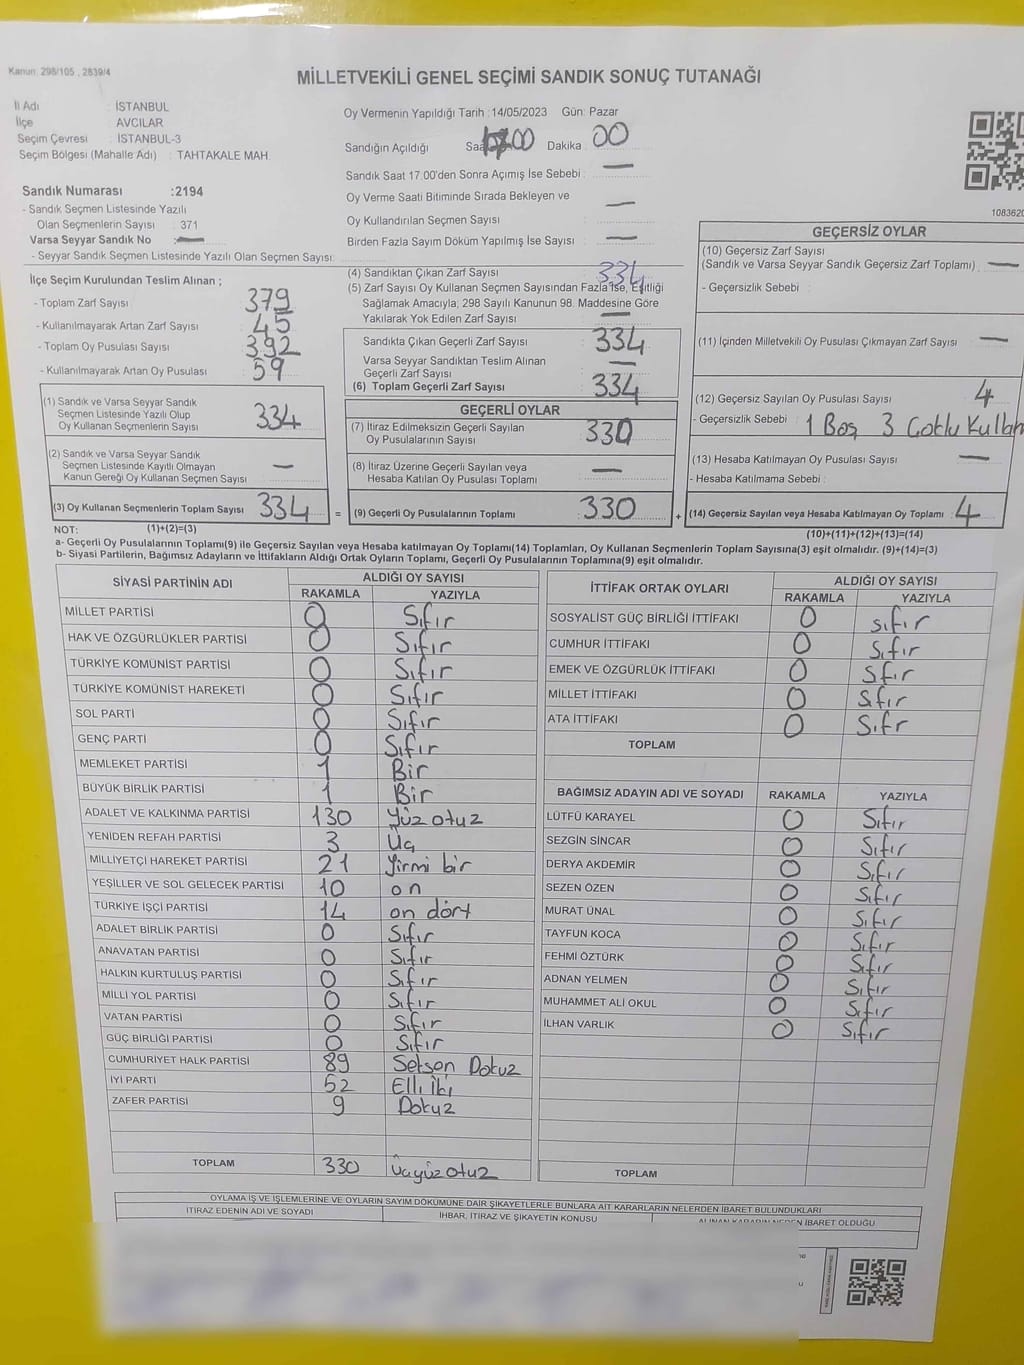 Kanun: 298/105 , 2839/4
MİLLETVEKİLİ GENEL SEÇİMİ SANDIK SONUÇ TUTANAĞI
İl Adı : İSTANBUL
İlçe : AVCILAR
Seçim Çevresi : İSTANBUL-3
Seçim Bölgesi (Mahalle Adı) : TAHTAKALE MAH.
Sandık Numarası :2194
- Sandık Seçmen Listesinde Yazılı
Olan Seçmenlerin Sayısı : 371
Varsa Seyyar Sandık No : —
- Seyyar Sandık Seçmen Listesinde Yazılı Olan Seçmen Sayısı:
Oy Vermenin Yapıldığı Tarih :14/05/2023 Gün: Pazar
Sandığın Açıldığı Saat 17:00 Dakika : 00
Sandık Saat 17.00'den Sonra Açımış İse Sebebi : —
Oy Verme Saati Bitiminde Sırada Bekleyen ve
Oy Kullandırılan Seçmen Sayısı : —
Birden Fazla Sayım Döküm Yapılmış İse Sayısı : —
108362
İlçe Seçim Kurulundan Teslim Alınan ;
- Toplam Zarf Sayısı : 379
- Kullanılmayarak Artan Zarf Sayısı : 45
- Toplam Oy Pusulası Sayısı : 392
- Kullanılmayarak Artan Oy Pusulası : 59
(1) Sandık ve Varsa Seyyar Sandık
Seçmen Listesinde Yazılı Olup
Oy Kullanan Seçmenlerin Sayısı : 334
(2) Sandık ve Varsa Seyyar Sandık
Seçmen Listesinde Kayıtlı Olmayan
Kanun Gereği Oy Kullanan Seçmen Sayısı : —
(3) Oy Kullanan Seçmenlerin Toplam Sayısı : 334 =
(4) Sandıktan Çıkan Zarf Sayısı : 334
(5) Zarf Sayısı Oy Kullanan Seçmen Sayısından Fazla İse, Eşitliği
Sağlamak Amacıyla; 298 Sayılı Kanunun 98. Maddesine Göre
Yakılarak Yok Edilen Zarf Sayısı : —
Sandıkta Çıkan Geçerli Zarf Sayısı : 334
Varsa Seyyar Sandıktan Teslim Alınan
Geçerli Zarf Sayısı : —
(6) Toplam Geçerli Zarf Sayısı : 334
GEÇERLİ OYLAR
(7) İtiraz Edilmeksizin Geçerli Sayılan
Oy Pusulalarının Sayısı : 330
(8) İtiraz Üzerine Geçerli Sayılan veya
Hesaba Katılan Oy Pusulası Toplamı : —
(9) Geçerli Oy Pusulalarının Toplamı : 330 +
GEÇERSİZ OYLAR
(10) Geçersiz Zarf Sayısı
(Sandık ve Varsa Seyyar Sandık Geçersiz Zarf Toplamı) : —
- Geçersizlik Sebebi :
(11) İçinden Milletvekili Oy Pusulası Çıkmayan Zarf Sayısı : —
(12) Geçersiz Sayılan Oy Pusulası Sayısı : 4
- Geçersizlik Sebebi : 1 Boş 3 Çoklu Kullan
(13) Hesaba Katılmayan Oy Pusulası Sayısı : —
- Hesaba Katılmama Sebebi :
(14) Geçersiz Sayılan veya Hesaba Katılmayan Oy Toplamı : 4
NOT: (1)+(2)=(3) (10)+(11)+(12)+(13)=(14)
a- Geçerli Oy Pusulalarının Toplamı(9) ile Geçersiz Sayılan veya Hesaba katılmayan Oy Toplamı(14) Toplamları, Oy Kullanan Seçmenlerin Toplam Sayısına(3) eşit olmalıdır. (9)+(14)=(3)
b- Siyasi Partilerin, Bağımsız Adayların ve İttifakların Aldığı Ortak Oyların Toplamı, Geçerli Oy Pusulalarının Toplamına(9) eşit olmalıdır.
SİYASİ PARTİNİN ADI ALDIĞI OY SAYISI
RAKAMLA YAZIYLA
MİLLET PARTİSİ 0 Sıfır
HAK VE ÖZGÜRLÜKLER PARTİSİ 0 Sıfır
TÜRKİYE KOMÜNİST PARTİSİ 0 Sıfır
TÜRKİYE KOMÜNİST HAREKETİ 0 Sıfır
SOL PARTİ 0 Sıfır
GENÇ PARTİ 0 Sıfır
MEMLEKET PARTİSİ 1 Bir
BÜYÜK BİRLİK PARTİSİ 1 Bir
ADALET VE KALKINMA PARTİSİ 130 Yüz otuz
YENİDEN REFAH PARTİSİ 3 Üç
MİLLİYETÇİ HAREKET PARTİSİ 21 Yirmi bir
YEŞİLLER VE SOL GELECEK PARTİSİ 10 on
TÜRKİYE İŞÇİ PARTİSİ 14 on dört
ADALET BİRLİK PARTİSİ 0 Sıfır
ANAVATAN PARTİSİ 0 Sıfır
HALKIN KURTULUŞ PARTİSİ 0 Sıfır
MİLLİ YOL PARTİSİ 0 Sıfır
VATAN PARTİSİ 0 Sıfır
GÜÇ BİRLİĞİ PARTİSİ 0 Sıfır
CUMHURİYET HALK PARTİSİ 89 Seksen Dokuz
İYİ PARTİ 52 Elli İki
ZAFER PARTİSİ 9 Dokuz
TOPLAM 330 Üçyüz otuz
İTTİFAK ORTAK OYLARI ALDIĞI OY SAYISI
RAKAMLA YAZIYLA
SOSYALİST GÜÇ BİRLİĞİ İTTİFAKI 0 sıfır
CUMHUR İTTİFAKI 0 Sıfır
EMEK VE ÖZGÜRLÜK İTTİFAKI 0 Sfır
MİLLET İTTİFAKI 0 Sıfır
ATA İTTİFAKI 0 Sıfr
TOPLAM
BAĞIMSIZ ADAYIN ADI VE SOYADI RAKAMLA YAZIYLA
LÜTFÜ KARAYEL 0 Sıfır
SEZGİN SİNCAR 0 Sıfır
DERYA AKDEMİR 0 Sıfır
SEZEN ÖZEN 0 Sıfır
MURAT ÜNAL 0 Sıfır
TAYFUN KOCA 0 Sıfır
FEHMİ ÖZTÜRK 0 Sıfır
ADNAN YELMEN 0 Sıfır
MUHAMMET ALİ OKUL 0 Sıfır
İLHAN VARLIK 0 Sıfır
TOPLAM
OYLAMA İŞ VE İŞLEMLERİNE VE OYLARIN SAYIM DÖKÜMÜNE DAİR ŞİKAYETLERLE BUNLARA AİT KARARLARIN NELERDEN İBARET BULUNDUKLARI
İTİRAZ EDENİN ADI VE SOYADI İHBAR, İTİRAZ VE ŞİKAYETİN KONUSU ALINAN KARARIN NEDEN İBARET OLDUĞU